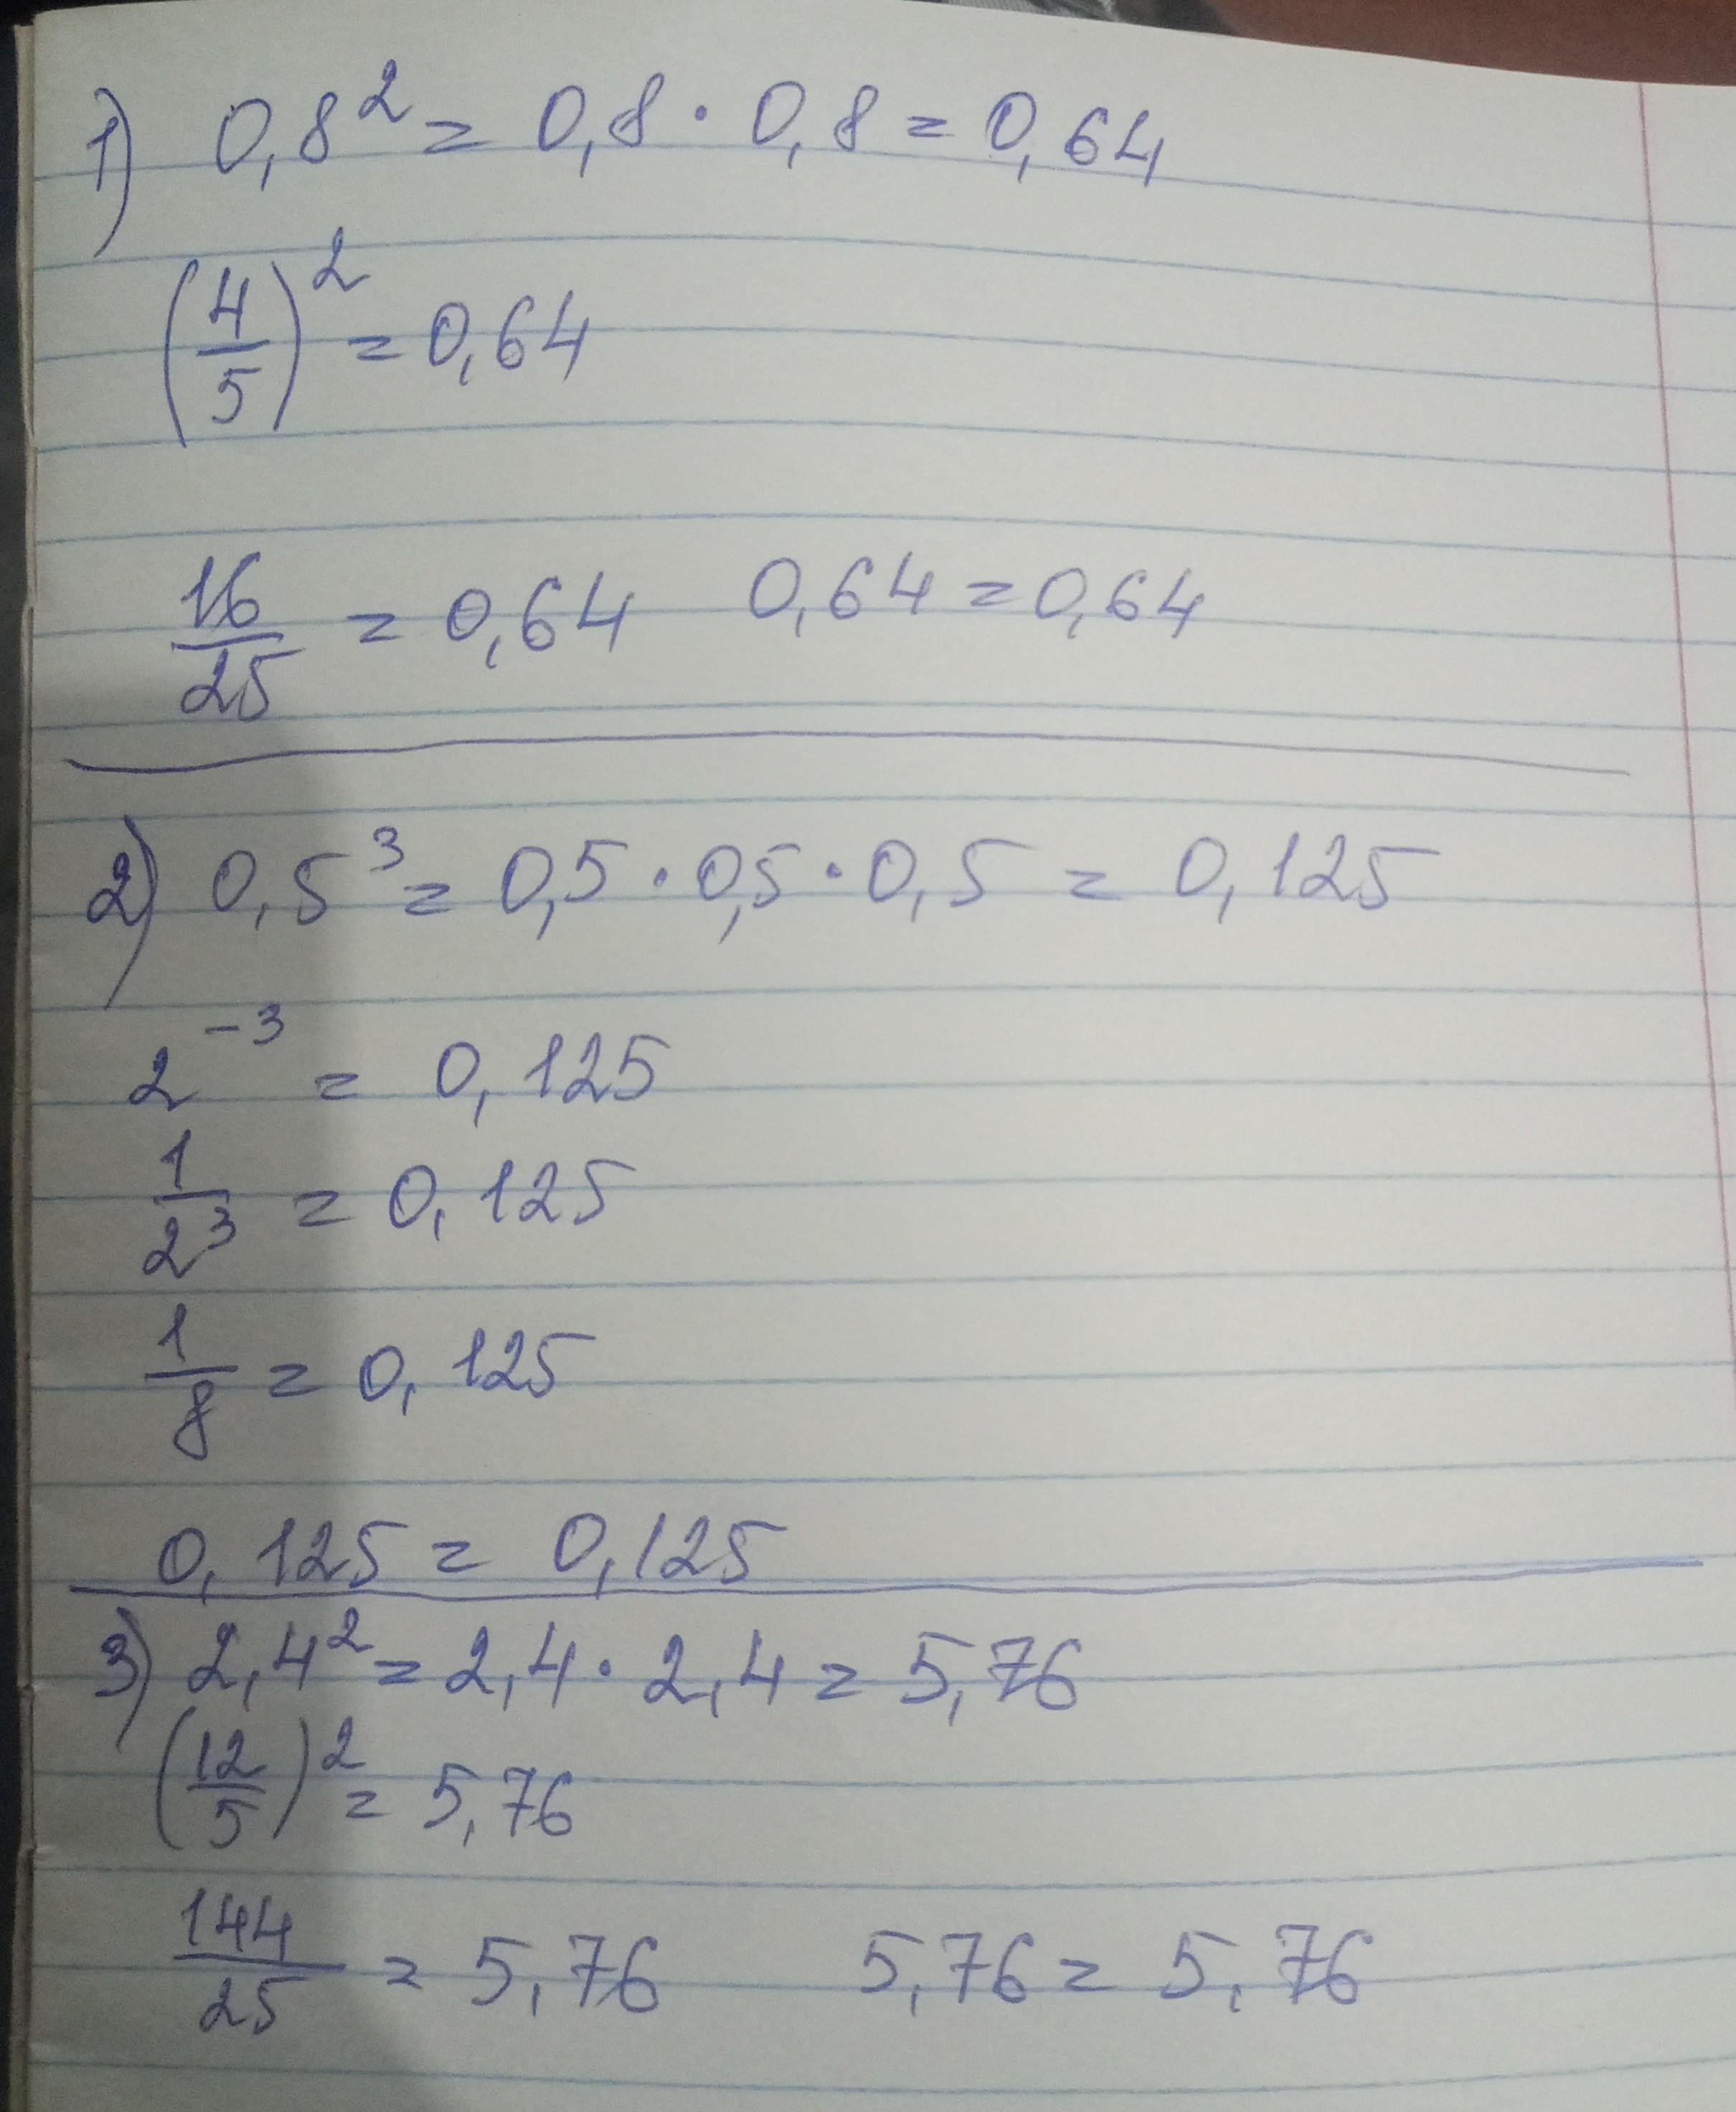 1) 0,8² = 0,8 · 0,8 = 0,64
(4/5)² = 0,64
16/25 = 0,64 0,64 = 0,64
2) 0,5³ = 0,5 · 0,5 · 0,5 = 0,125
2⁻³ = 0,125
1/2³ = 0,125
1/8 = 0,125
0,125 = 0,125
3) 2,4² = 2,4 · 2,4 = 5,76
(12/5)² = 5,76
144/25 = 5,76 5,76 = 5,76